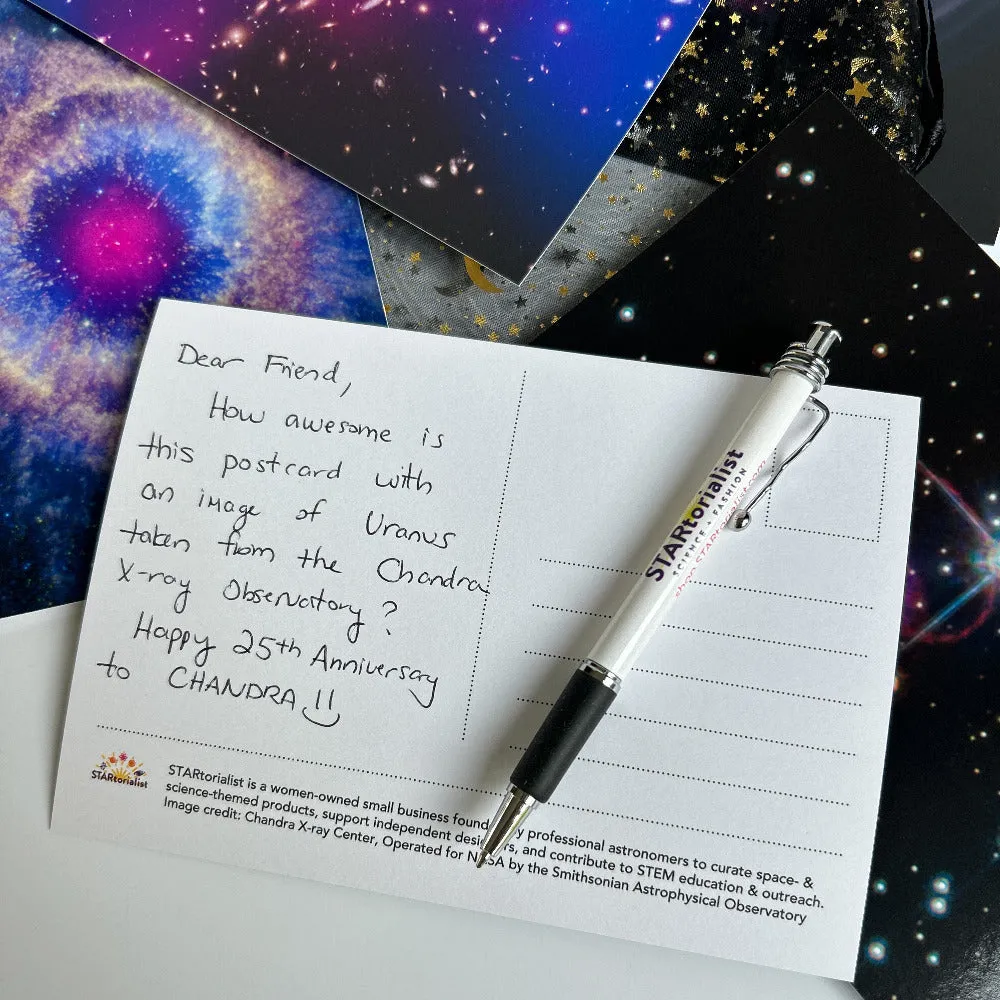 Dear Friend,
How awesome is
this postcard with
an image of Uranus
taken from the Chandra
X-ray Observatory?
Happy 25th Anniversary
to CHANDRA!!
STARtorialist
SCIENCE + FASHION
shop.STARtorialist.com
STARtorialist
STARtorialist is a women-owned small business found y professional astronomers to curate space- &
science-themed products, support independent desi rs, and contribute to STEM education & outreach.
Image credit: Chandra X-ray Center, Operated for NASA by the Smithsonian Astrophysical Observatory